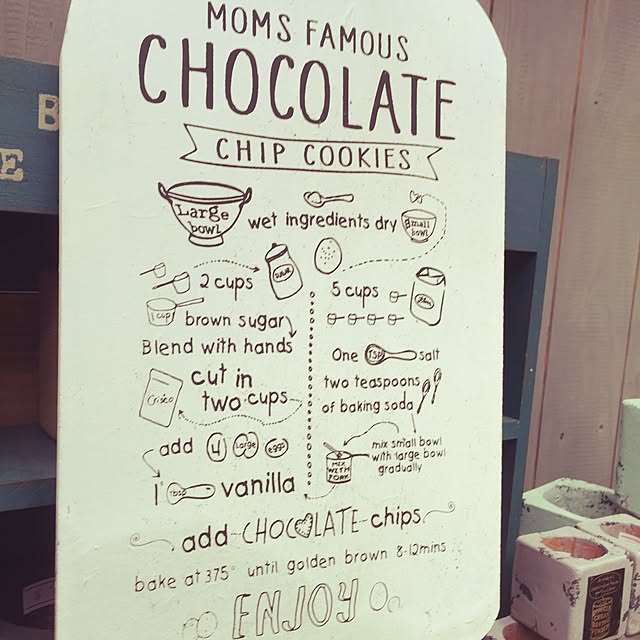 MOMS FAMOUS
CHOCOLATE
CHIP COOKIES
Large bowl
wet ingredients dry
Small bowl
2 cups
SUGAR
1 cup
brown sugar
Blend with hands
Crisco
cut in
two cups
add 4 Large eggs
1 tbsp vanilla
5 cups
One tsp salt
two teaspoons
of baking soda
mix small bowl
with large bowl
gradually
MIX
WITH
FORK
add CHOCOLATE chips
bake at 375° until golden brown 8-12mins
ENJOY
B
E